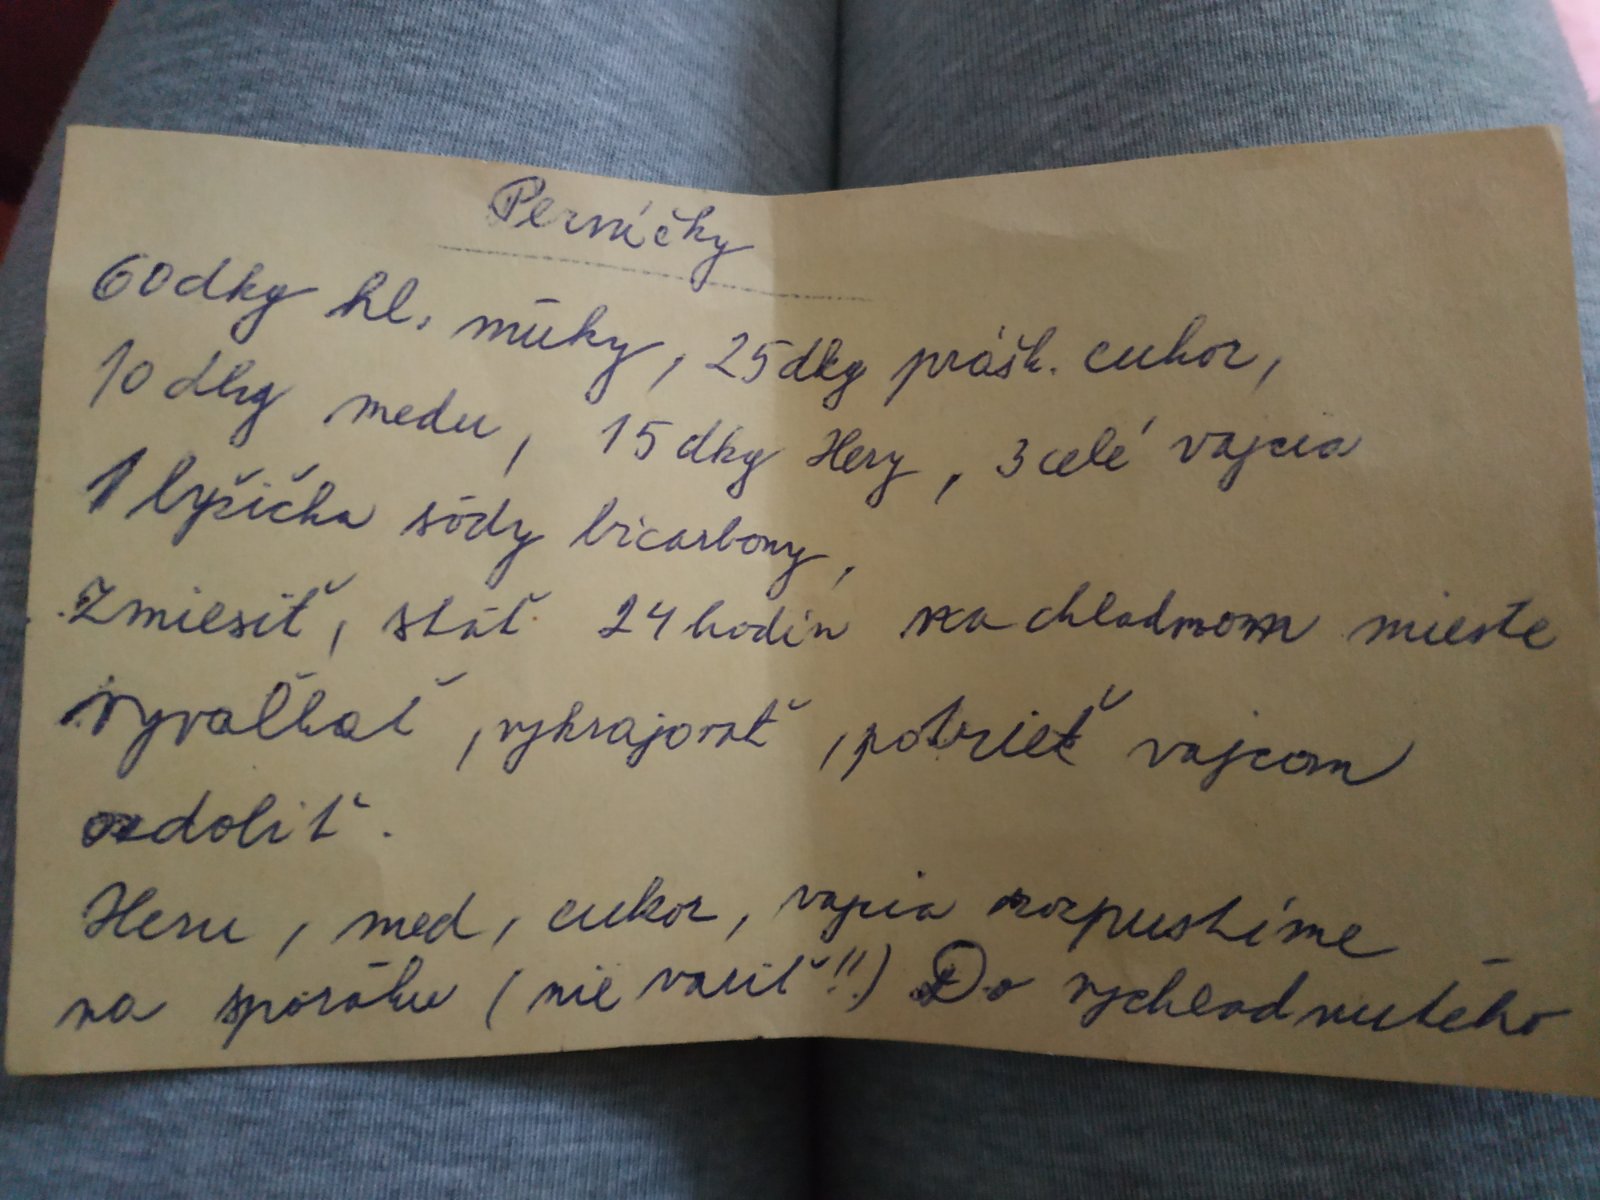 Perníčky
60dkg hl. múky, 25dkg prášk. cukor,
10 dkg medu, 15dkg Hery, 3 celé vajcia
1 lyžička sódy bicarbony,
Zmiesiť, stáť 24 hodín na chladnom mieste
vyvaľkať, vykrajovať, potrieť vajcom
ozdobiť.
Heru, med, cukor, vajcia rozpustíme
na sporáku (nie variť!!) Do vychladnutého